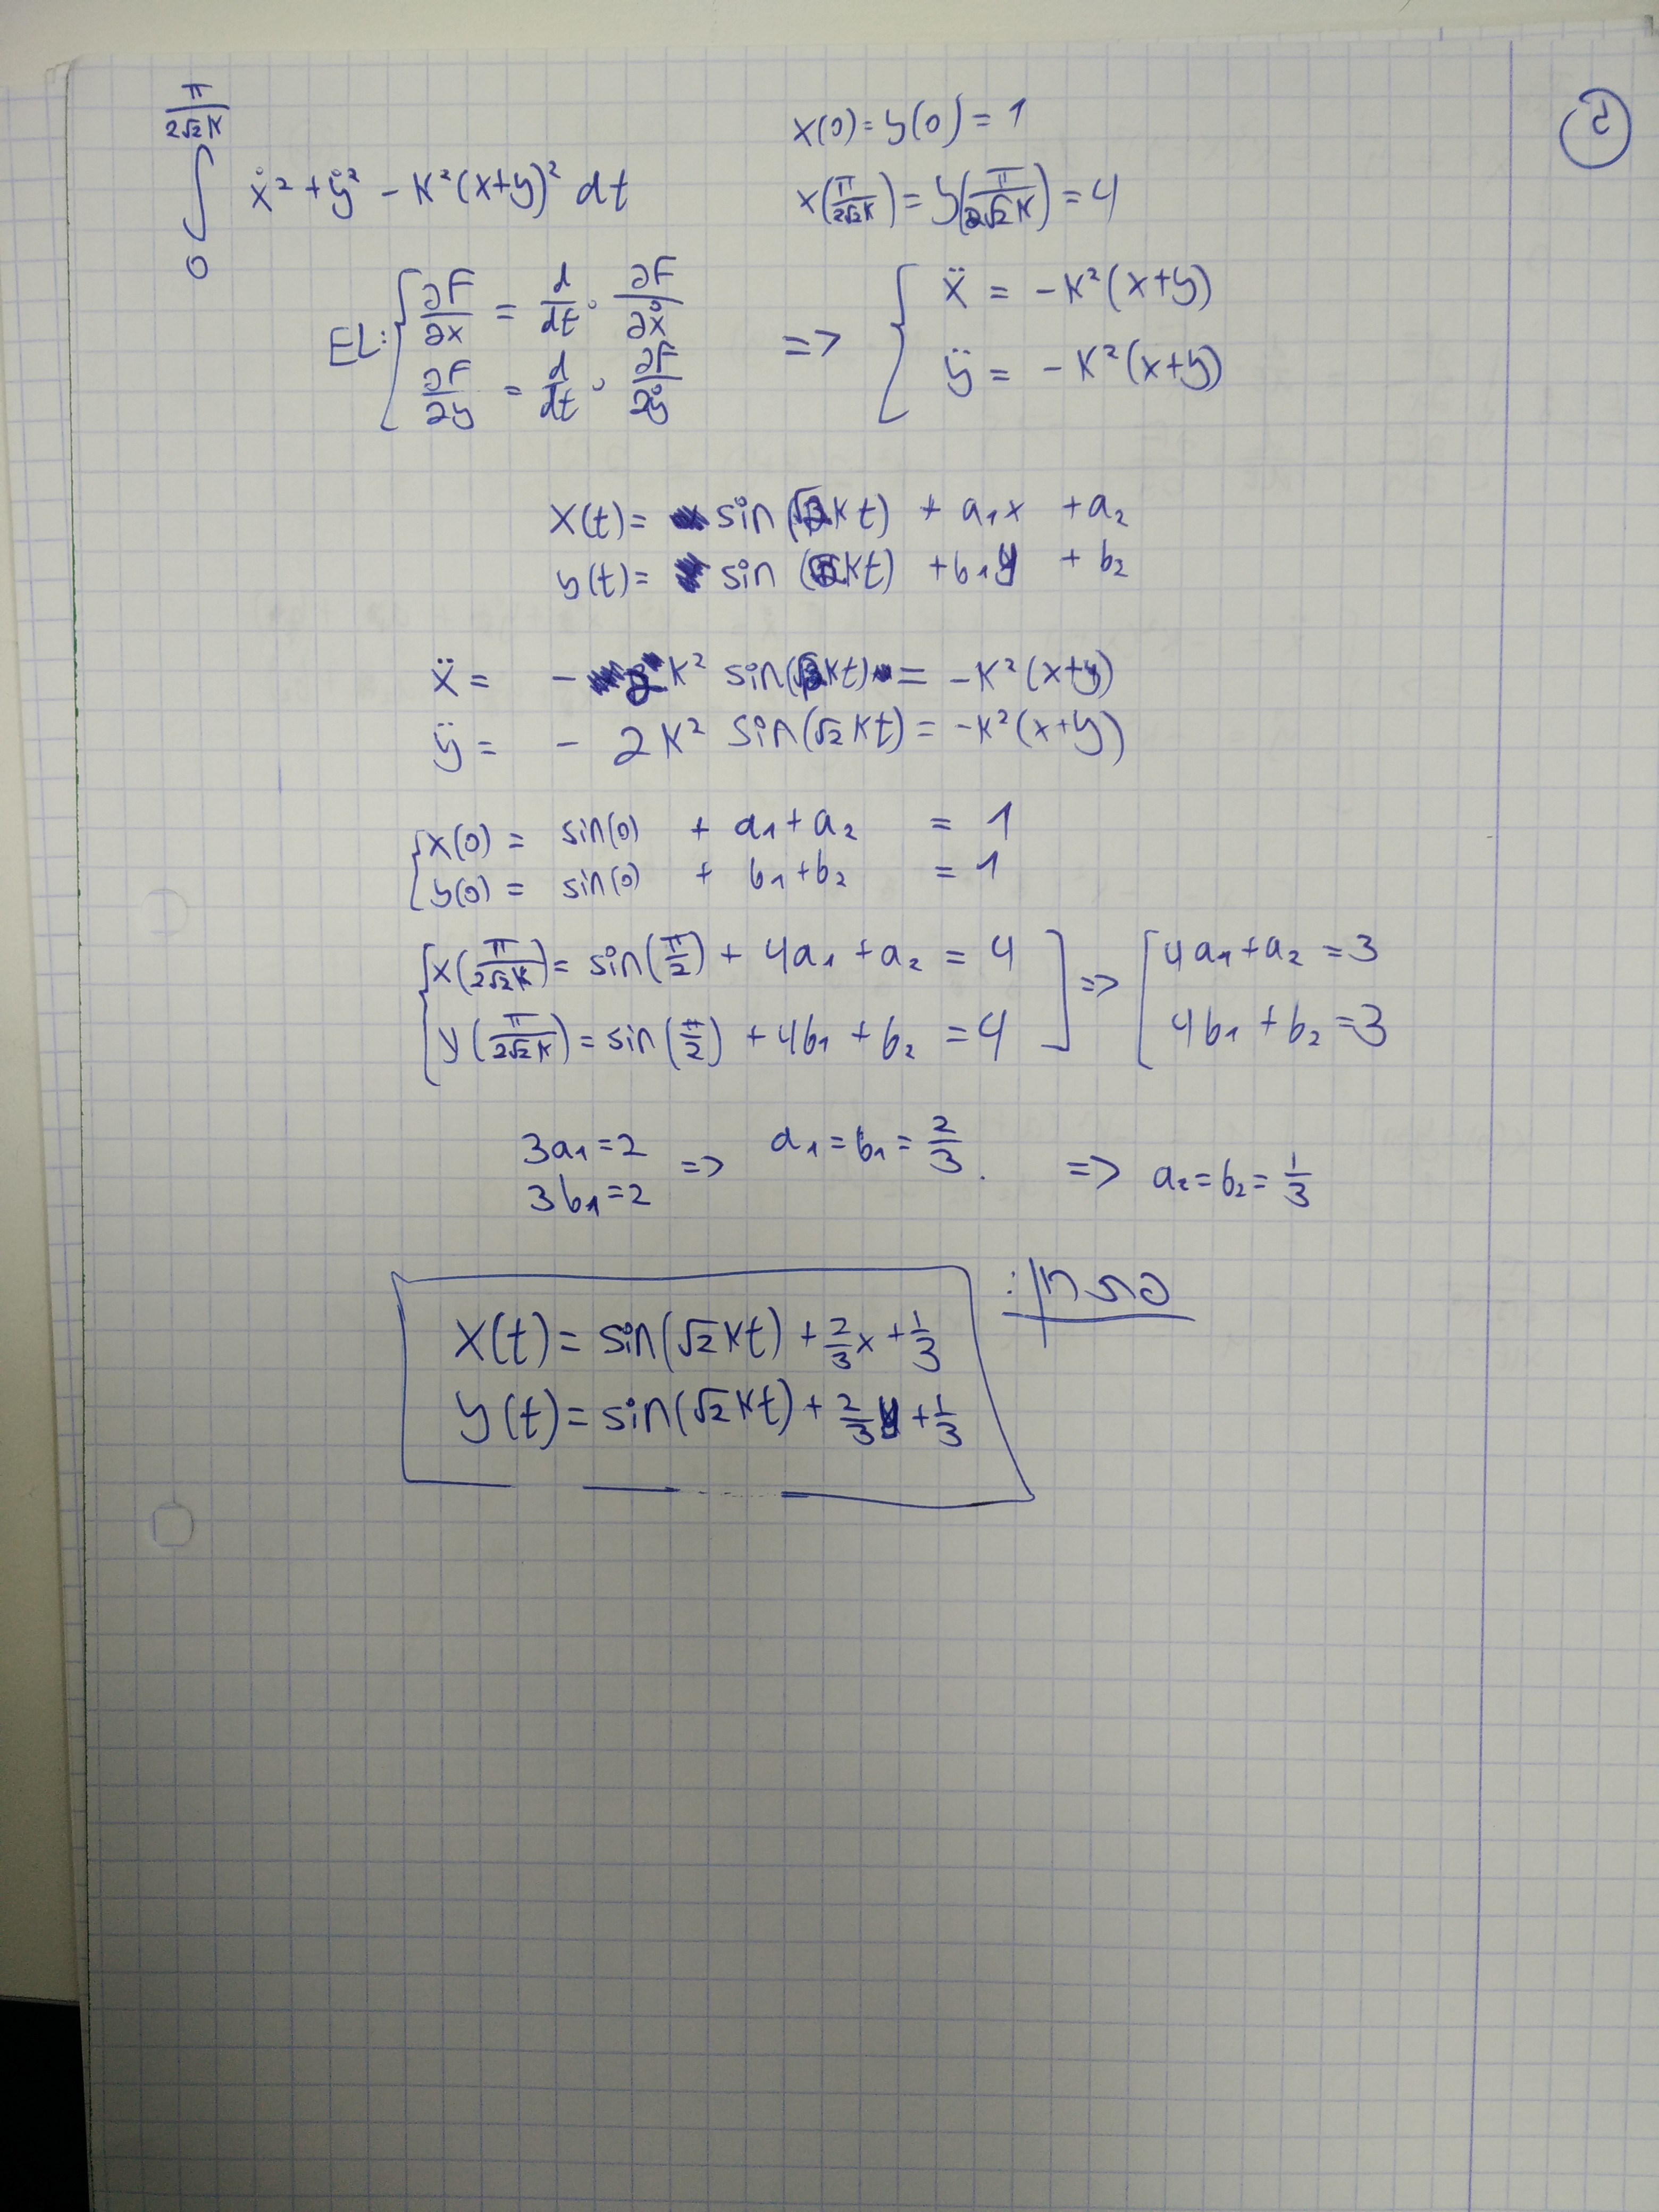 ב
∫₀^{π/(2√2K)} ẋ² + ẏ² - K²(x+y)² dt
x(0) = y(0) = 1
x(π/(2√2K)) = y(π/(2√2K)) = 4
EL: { ∂F/∂x = d/dt · ∂F/∂ẋ => { ẍ = -K²(x+y)
∂F/∂y = d/dt · ∂F/∂ẏ ÿ = -K²(x+y)
x(t) = sin(√2Kt) + a₁x + a₂
y(t) = sin(√2Kt) + b₁y + b₂
ẍ = - 2K² sin(√2Kt) = -K²(x+y)
ÿ = - 2K² sin(√2Kt) = -K²(x+y)
x(0) = sin(0) + a₁ + a₂ = 1
y(0) = sin(0) + b₁ + b₂ = 1
x(π/(2√2K)) = sin(π/2) + 4a₁ + a₂ = 4 => [ 4a₁ + a₂ = 3
y(π/(2√2K)) = sin(π/2) + 4b₁ + b₂ = 4 4b₁ + b₂ = 3
3a₁ = 2 => a₁ = b₁ = 2/3. => a₂ = b₂ = 1/3
3b₁ = 2
x(t) = sin(√2Kt) + 2/3x + 1/3
y(t) = sin(√2Kt) + 2/3y + 1/3